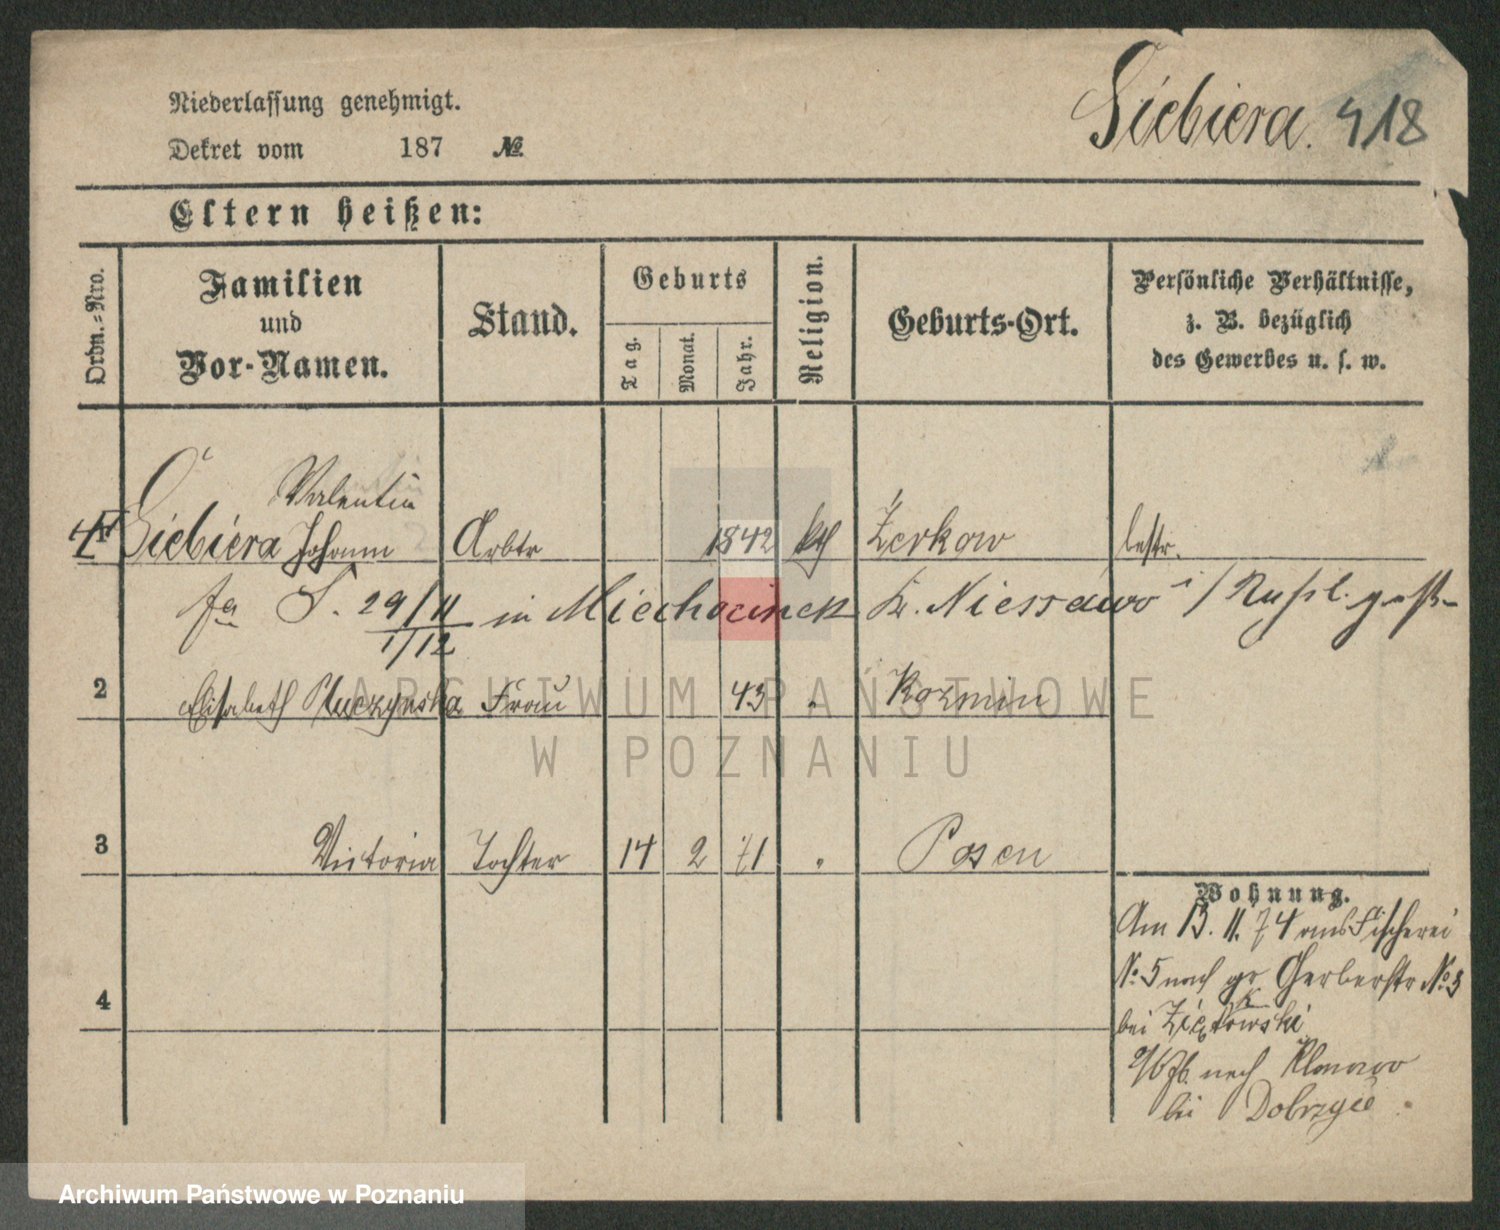 Niederlassung genehmigt.
Siebiera. 418
Dekret vom 187 №
Eltern heißen:
Ordn.-Nro.
Familien und Vor-Namen.
Stand.
Geburts
Tag.
Monat.
Jahr.
Religion.
Geburts-Ort.
Persönliche Verhältnisse,
z. B. bezüglich
des Gewerbes u. s. w.
Valentin
Siebiera Johann Arbtr 1842 kth Żerkow
S. 29/11 in Miechocinek Kr.
1/12
2 Elisabeth Frau 43 " Kozmin
3 Victoria Tochter 14 2 71 " Posen
Wohnung.
Am 13. 11. 74 aus Fischerei
No 5 nach gr Gerberstr No 3
bei
nach
bei Dobrzyce
4
ARCHIWUM PAŃSTWOWE
W POZNANIU
Archiwum Państwowe w Poznaniu